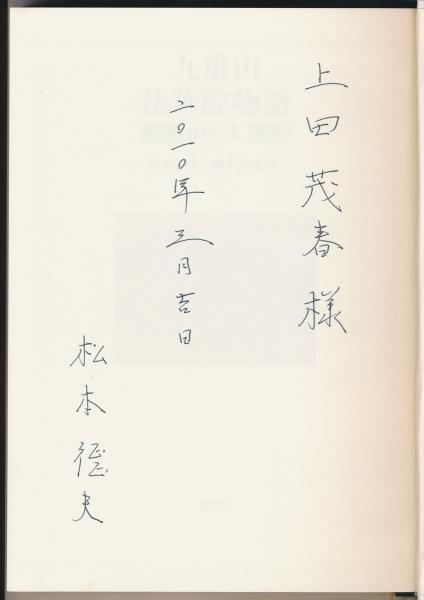 上田茂春様
二〇一〇年三月吉日
松本征夫
九重山
法華院物語
山と人